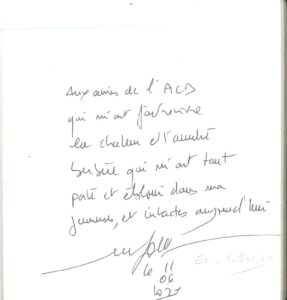 Aux amis de l'ACB
qui m'ont fait revivre
la chaleur et l'amitié
berbère qui m'ont tant
parlé et ébloui dans ma
jeunesse, et intactes aujourd'hui
le 11
06
Eric Fottorino